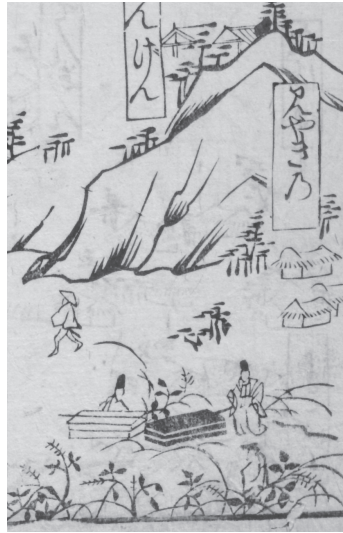 みやきの
んげん